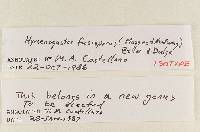 Hymenogaster fusisporus (Massee & Rodway)
Zeller & Dodge
M.A. Castellano
22-OCT-1986
ISOTYPE
This belongs in a new genus
To be erected
M.A. Castellano
28-Jan-1987